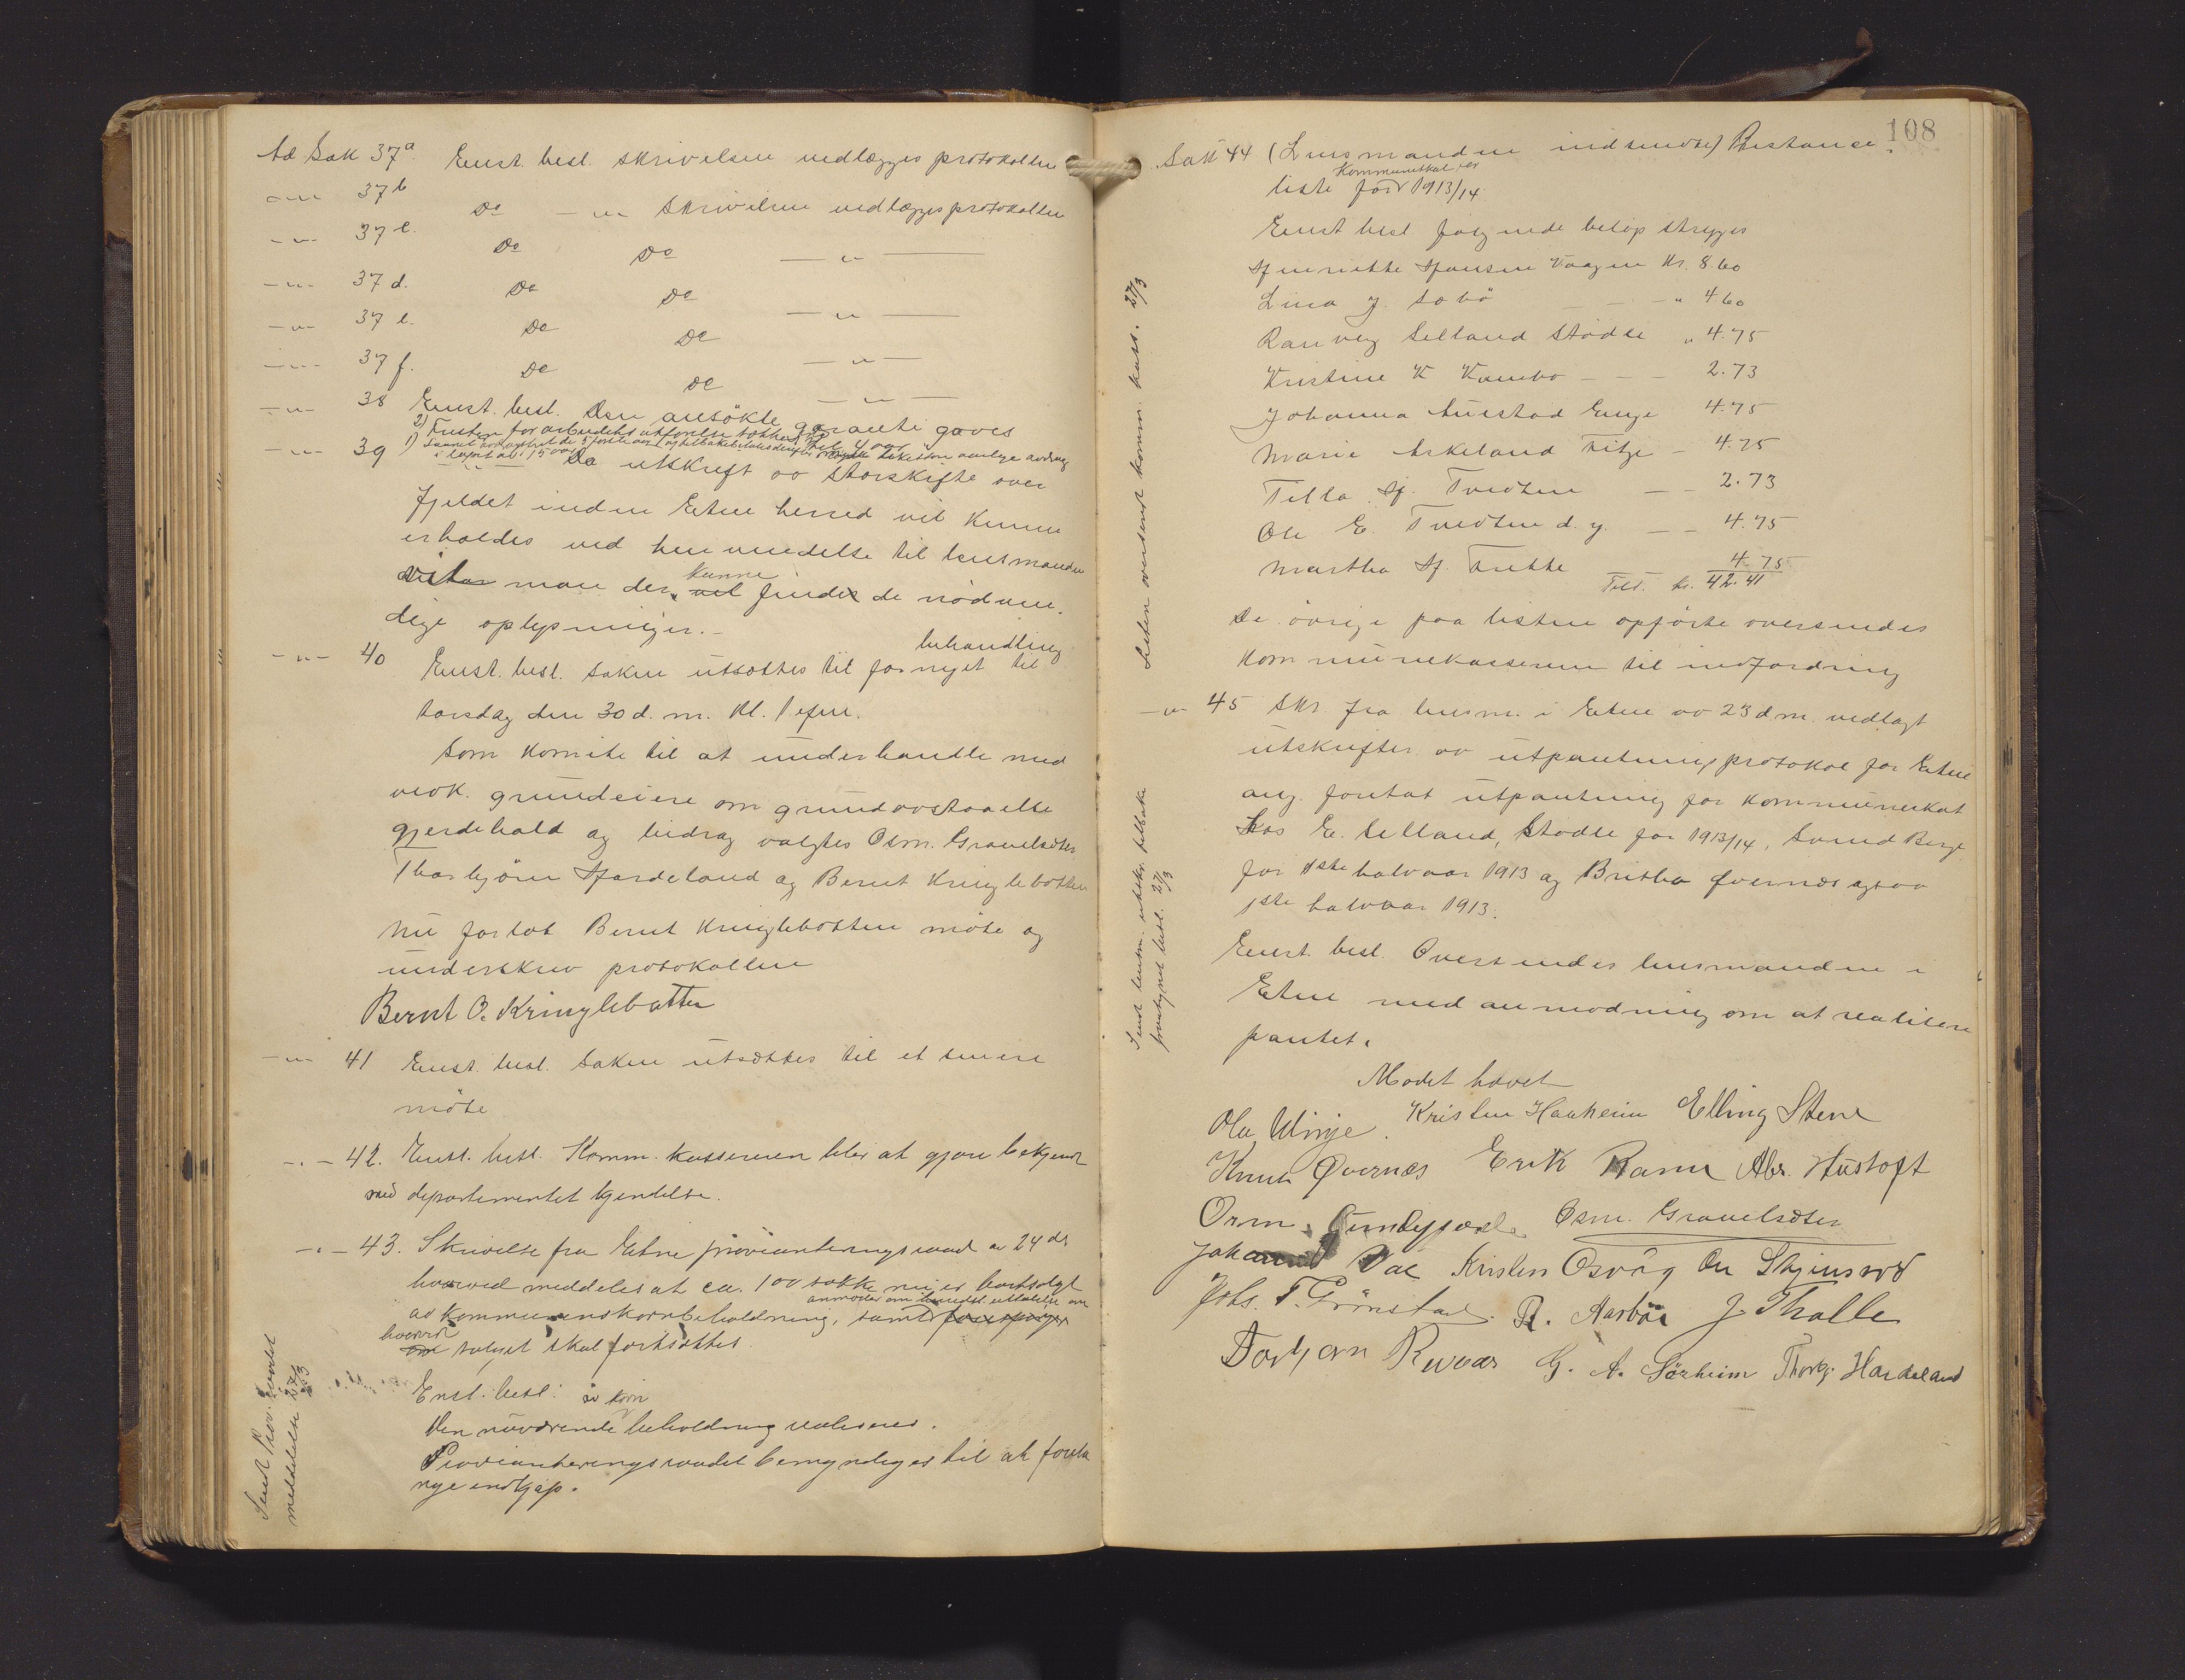 Ad Sak 37a. Enst. besl. skrivelsen vedlægges protokollen
-"- 37b Do -"- Skrivelsen vedlægges protokollen
-"- 37c. Do Do -"-
-"- 37d. Do Do -"-
-"- 37e. Do Do -"-
-"- 37f. Do Do -"-
-"- 38 Enst. besl. Den ansökte garanti gaves
2) Fristen for arbeidets utförelse sættes til 4 aar
1) Laanet avdragsfrit de 5 förste aar og tilbakebetales derefter med like store aarlige avdrag
i löpet av 15 aar
-"- 39 Da utskrift av Storskifte over
fjeldet inden Etne herred vil kunne
erholdes ved henvendelse til lensmanden
vil man der kunne finde de nödven-
dige oplysninger.-
behandling
-"- 40 Enst. besl. Saken utsættes til fornyet til
torsdag den 30 d. m. Kl. 1 efm.
Som komite til at underhandle med
vedk. grundeiere om grundavstaaelse
gjerdehald og bidrag valgtes Osm. Gravelsæter
Thorbjörn Hardeland og Bernt Kringlebotten
Nu forlot Bernt Kringlebotten möte og
underskrev protokollen
Bernt O. Kringlebotten
-"- 41 Enst. besl. Saken utsættes til et senere
möte
-"- 42. Enst. besl. Komm. kassereren blir at gjøre bekjendt
med departementet kjendelse.
-"- 43. Skrivelse fra Etne provianteringsraad av 24 ds
hvorved meddeles at ca. 100 sække nu er bortsolgt
anmoder om herredst. uttalelse om
av kommunens kornbeholdning, samt forespörger
hvorvidt
om salget skal fortsættes.
Enst. besl.
av korn
Den nuværende beholdning realiseres.
Provianteringsraadet bemyndiges til at foreta
nye indkjøp.
Sendt Prov. raadet
meddelelse 27/3
108
Sak 44 (Lensmanden indsendte) Restance-
Kommuneskat
liste for 1913/14.
Enst besl følgende beløp stryges
Henriette Hansen Vaagen Kr. 8.60
Lina J. Sæbö - - " 4.60
Ranveig Selland Stödle " 4.75
Kristine K Kambo - - - 2.73
Johanna Aurstad Enge 4.75
Marie Askeland Fitje - 4.75
Tilla H. Tvedten - - 2.73
Ole E. Tvedten d. y. - - 4.75
Martha H. Frette 4.75
Tils. kr. 42.41
De övrige paa listen opförte oversendes
Kommunekassereren til indfordring
Listen oversendt komm. kass. 27/3
-"- 45 Skr. fra lensm. i Etne av 23 d.m. vedlagt
utskrifter av utpantningsprotokol for Etne
ang. foretat utpantning for Kommuneskat
hos E. Selland, Stödle for 1913/14, Svend Berge
for 1ste halvaar 1913 og Britha Øvernes ogsaa
1ste halvaar 1913.
Enst. besl. Oversendes lensmanden i
Etne med anmodning om at realisere
pantet.
Sendt lensm. utskr. tilbake
Mødet hævet
Ola Vinje. Kristen Haaheim Elling Stene
Knut Øvernes Erik Ramn Abr. Hustoft
Orm. Osm. Gravelsæter
Johannes Dal Kristen Osvåg
Johs. T. Grönstad. R. Aarbö J Tholle
Torbjørn Revaas G. A. Sörheim Thorbj. Hardeland